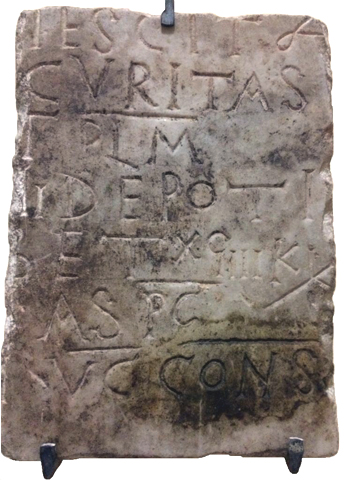 IESCIT
CVRITAS
PLM
DEPOTI
ET XO IIII KL
AS PC
VC CONS